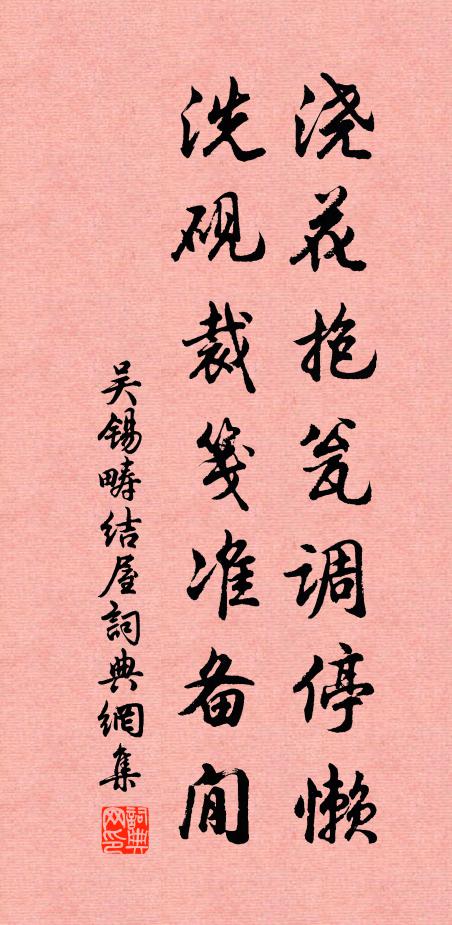 浇花抱瓮调停懒
洗砚裁笺准备闲
吴锡畴结屋詞典網集
詞典网印